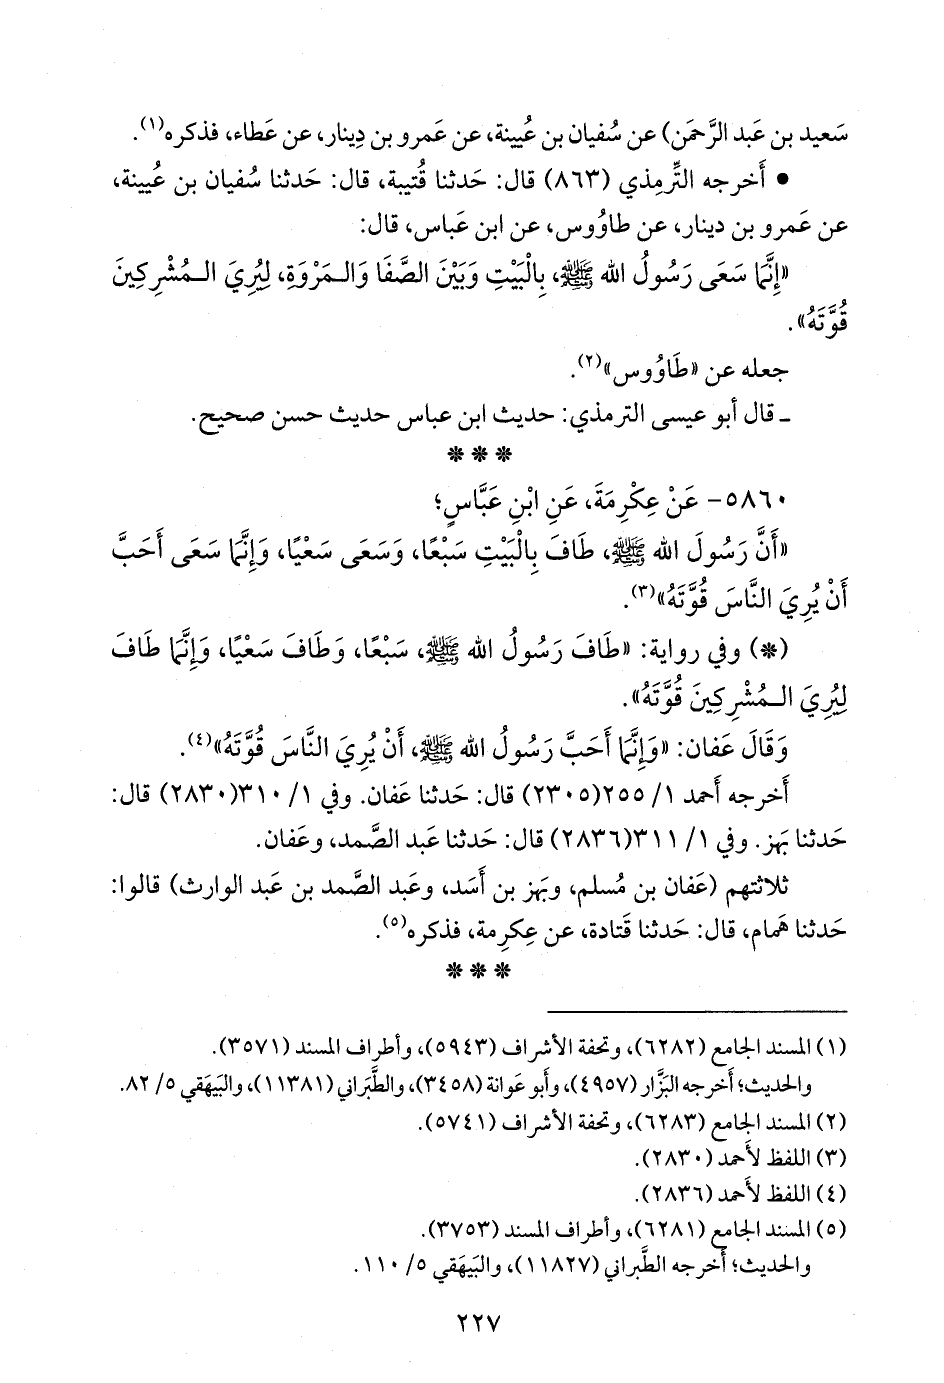 سَعيد بن عَبد الرَّحمَن) عن سُفيان بن عُيينة، عن عَمرو بن دِينار، عن عَطاء، فذكره(١).
• أَخرجه التِّرمِذي (٨٦٣) قال: حَدثنا قُتيبة، قال: حَدثنا سُفيان بن عُيينة،
عن عَمرو بن دينار، عن طاوُوس، عن ابن عَباس، قال:
«إِنَّمَا سَعَى رَسُولُ الله ﷺ، بِالْبَيْتِ وَبَيْنَ الصَّفَا وَالـمَرْوَةِ، لِيُرِيَ الـمُشْرِكِينَ
قُوَّتَهُ».
جعله عن «طَاوُوس»(٢).
ـ قال أَبو عيسى الترمذي: حديث ابن عباس حديث حسن صحيح.
* * *
٥٨٦٠- عَنْ عِكْرِمَةَ، عَنِ ابْنِ عَبَّاسٍ؛
«أَنَّ رَسُولَ الله ﷺ، طَافَ بِالْبَيْتِ سَبْعًا، وَسَعَى سَعْيًا، وَإِنَّمَا سَعَى أَحَبَّ
أَنْ يُرِيَ النَّاسَ قُوَّتَهُ»(٣).
(*) وفي رواية: «طَافَ رَسُولُ الله ﷺ، سَبْعًا، وَطَافَ سَعْيًا، وَإِنَّمَا طَافَ
لِيُرِيَ الـمُشْرِكِينَ قُوَّتَهُ».
وَقَالَ عَفان: «وَإِنَّمَا أَحَبَّ رَسُولُ الله ﷺ، أَنْ يُرِيَ النَّاسَ قُوَّتَهُ»(٤).
أَخرجه أَحمد ١/ ٢٥٥(٢٣٠٥) قال: حَدثنا عَفان. وفي ١/ ٣١٠(٢٨٣٠) قال:
حَدثنا بَهز. وفي ١/ ٣١١(٢٨٣٦) قال: حَدثنا عَبد الصَّمد، وعَفان.
ثلاثتهم (عَفان بن مُسلم، وبَهز بن أَسَد، وعَبد الصَّمد بن عَبد الوارث) قالوا:
حَدثنا هَمام، قال: حَدثنا قَتادة، عن عِكرِمة، فذكره(٥).
* * *
(١) المسند الجامع (٦٢٨٢)، وتحفة الأشراف (٥٩٤٣)، وأطراف المسند (٣٥٧١).
والحديث؛ أخرجه البَزَّار (٤٩٥٧)، وأبو عَوانة (٣٤٥٨)، والطَّبَراني (١١٣٨١)، والبَيهَقي ٥/ ٨٢.
(٢) المسند الجامع (٦٢٨٣)، وتحفة الأشراف (٥٧٤١).
(٣) اللفظ لأَحمد (٢٨٣٠).
(٤) اللفظ لأَحمد (٢٨٣٦).
(٥) المسند الجامع (٦٢٨١)، وأطراف المسند (٣٧٥٣).
والحديث؛ أخرجه الطَّبراني (١١٨٢٧)، والبَيهَقي ٥/ ١١٠.
٢٢٧